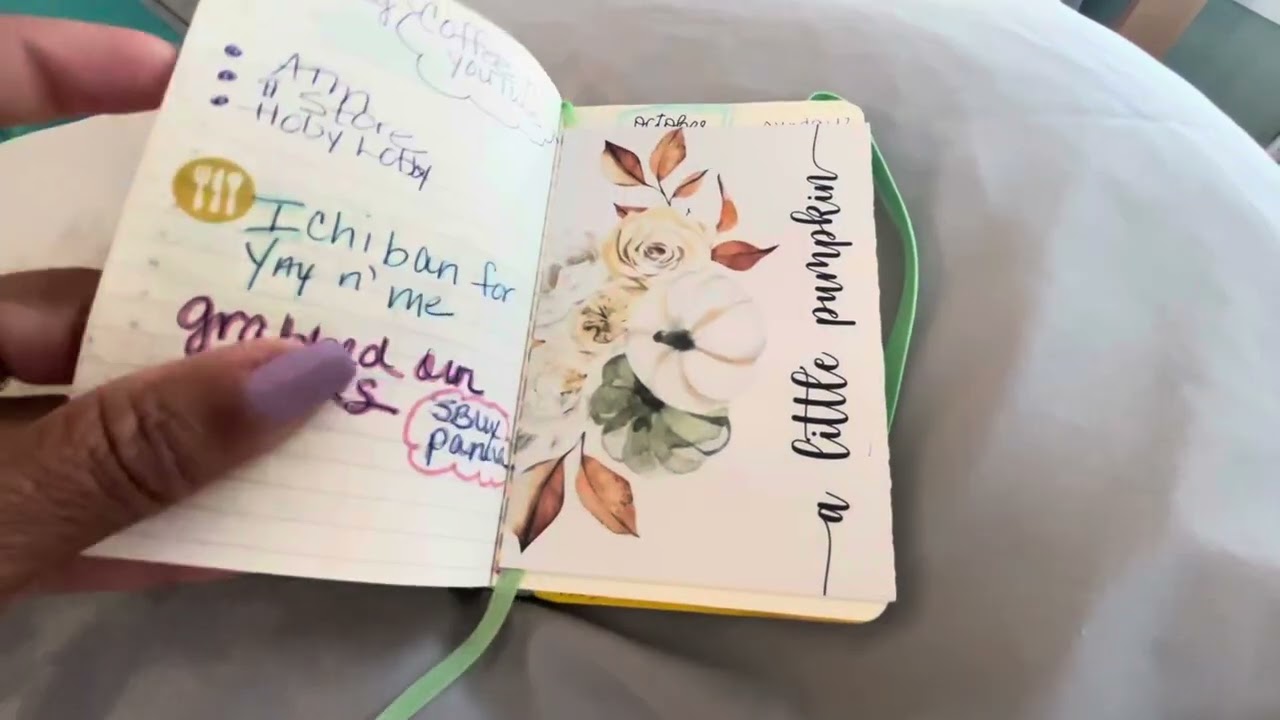 Coffee
YouTube
ATM
$ Store
Hoby Lobby
Ichiban for
Yay n' me
grabbed our
SBUX
panda
October
a little pumpkin